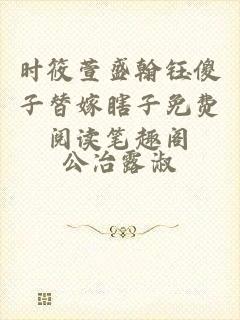 时筱萱盛翰钰傻
子替嫁瞎子免费
阅读笔趣阁
公冶露淑